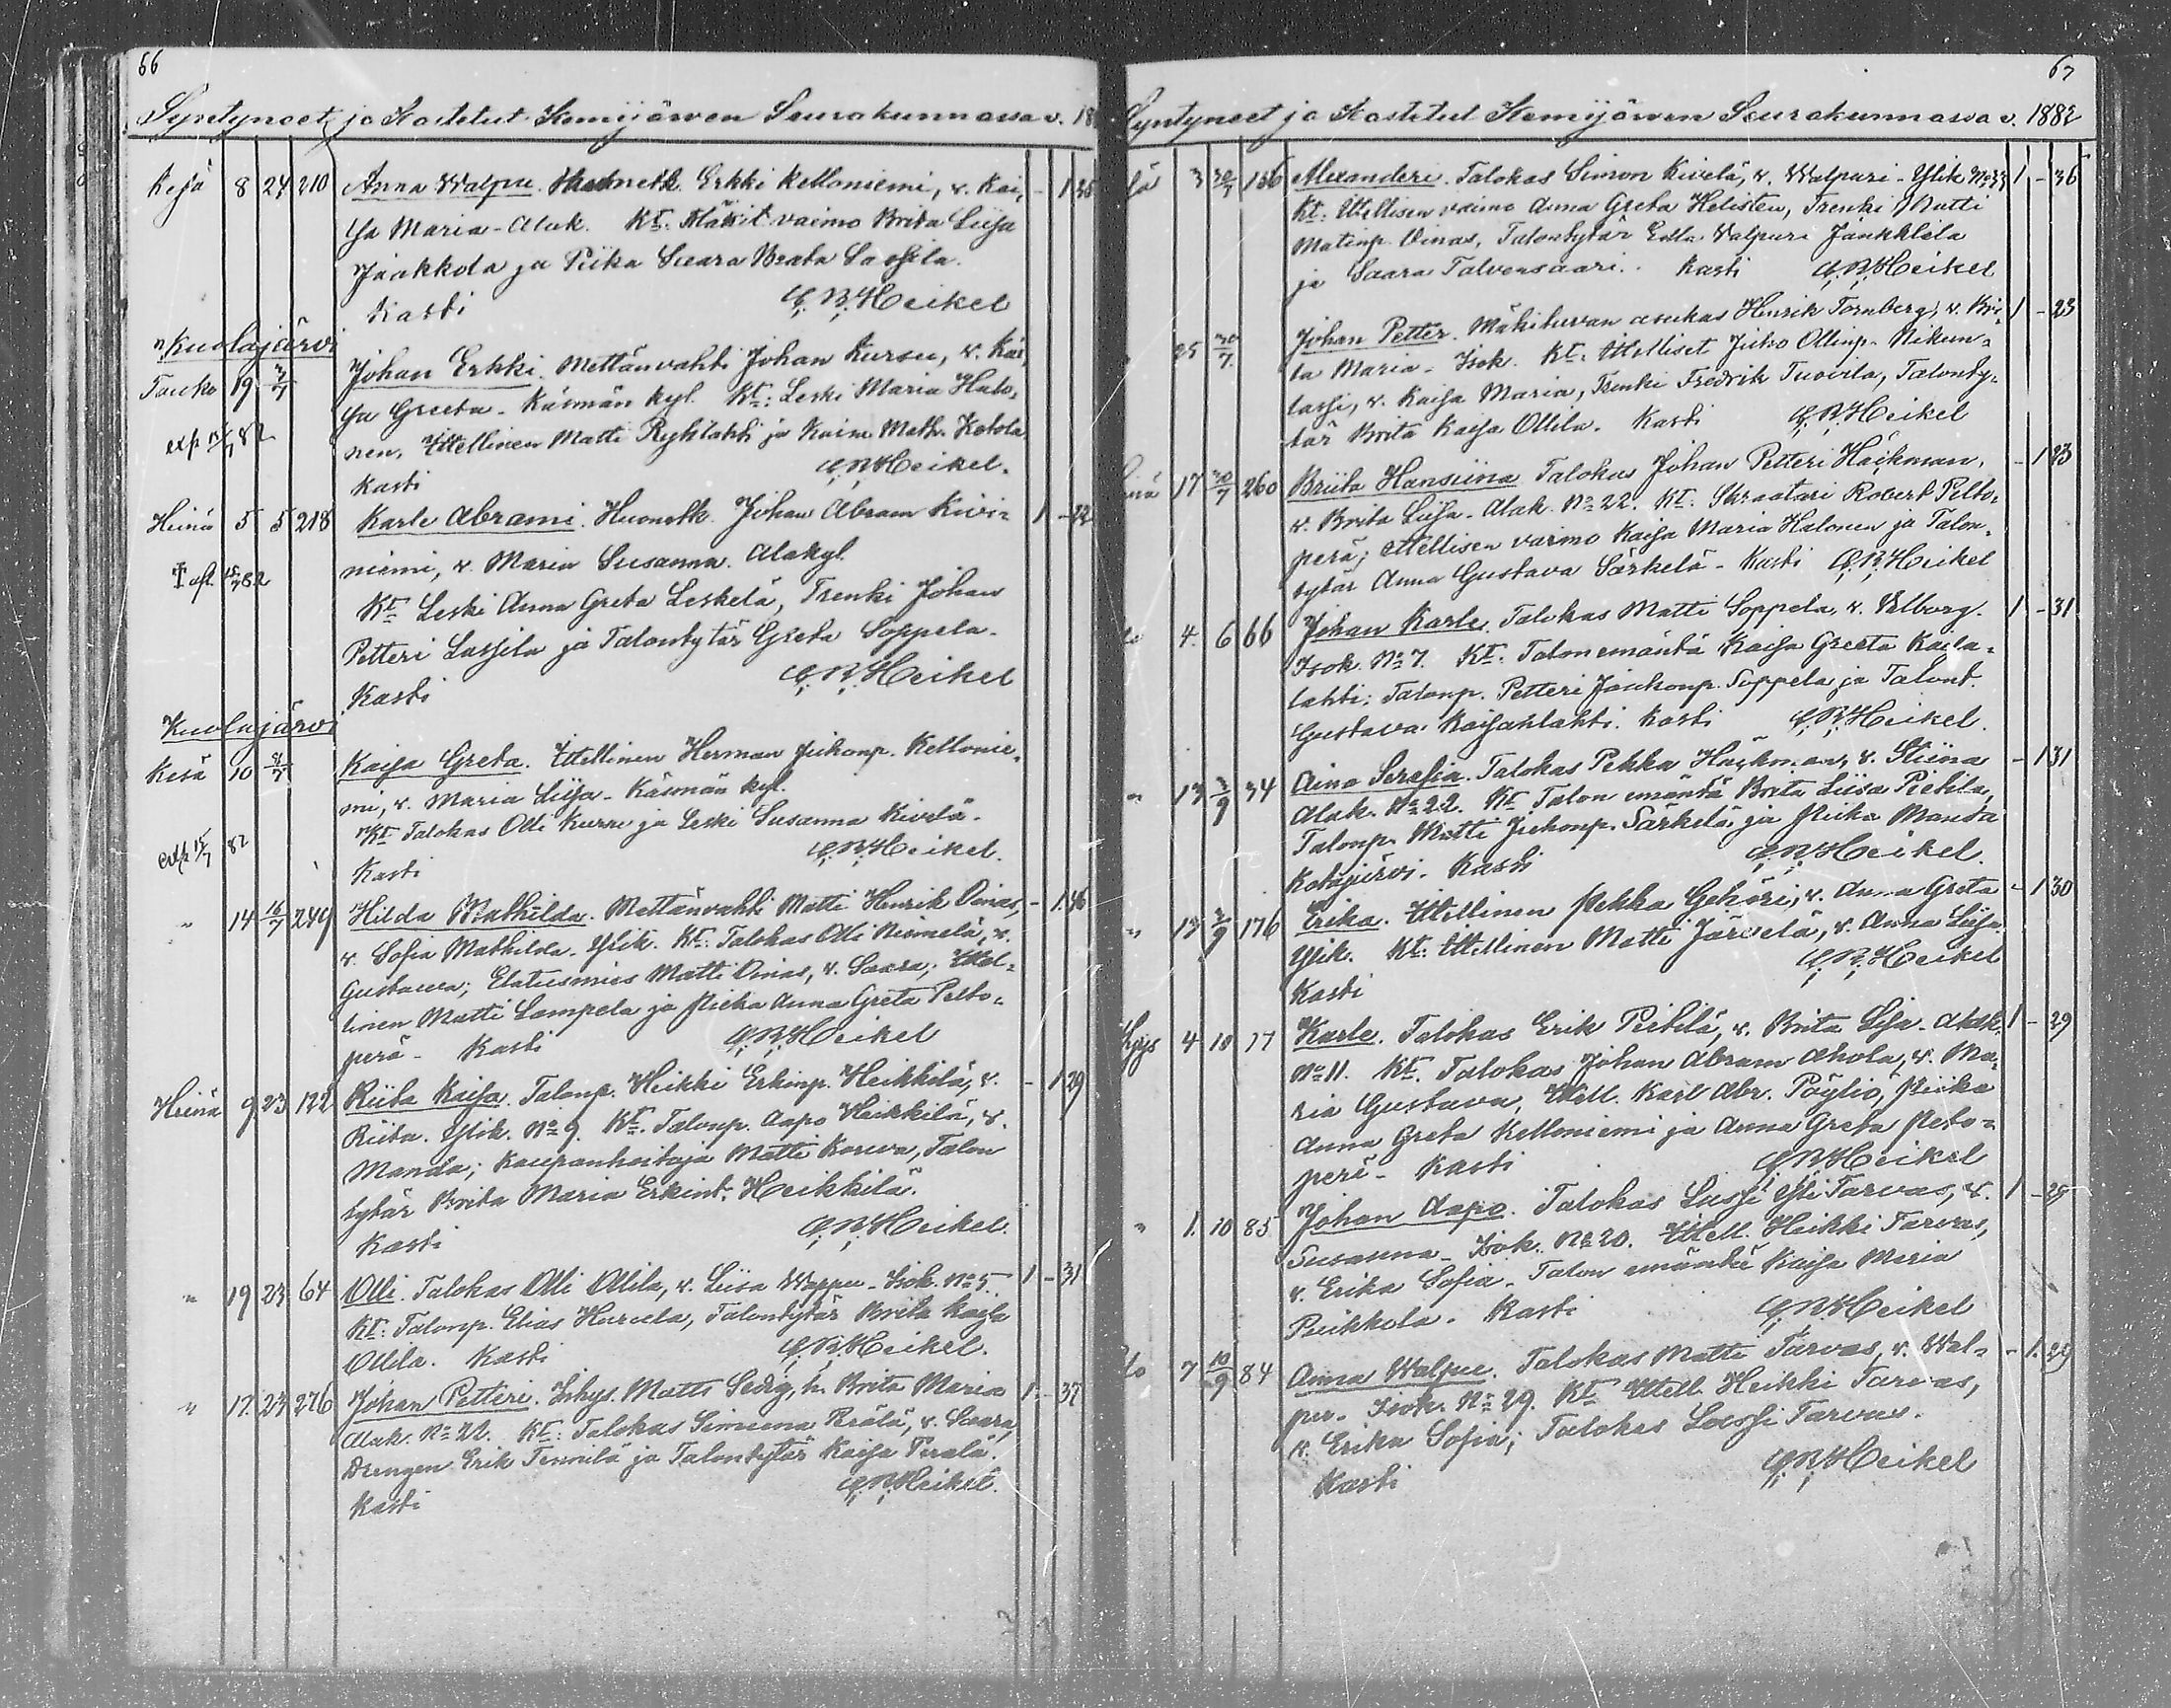 66
Syntyneet ja Kastetut Kemijärven Seurakunnassa v. 18
Kesä 8 24 210 Anna Walpu. Erkki Kelloniemi, v. Kai, - 1 35
sa Maria - Alak. Kt: Mäkit. vaimo Brita Liisa
Jaakkola ja Piika Saara Beata Lassila.
Kasti C. R. Heikel
Kuolajärvi
Johan Erkki. Mettänvahti Johan Kursu, v. Kai,
Touko 19 3/7
sa Greeta - Käsmän kyl. Kt: Leski Maria Halo,
exp 15/7 82
nen, Ittellinen Matti Ryhtilahti ja Kaisa Math. Kotola
Kasti C. R. Heikel.
Heinä 5 5 218 Karle Abrami. Huonetk. Johan Abram Kivi= 1 - 22
niemi, v. Maria Susanna. Alakyl.
† 15/7 82
Kt: Leski Anna Greta Leskelä, Trenki Johan
Petteri Lassila ja Talontytär Greta Soppela.
Kasti C. R. Heikel
Kuolajärvi
Kesä 10 Kaisa Greta. Ittellinen Herman Juhonp. Kellonie,
mi, v. Maria Liisa - Käsmän kyl.
Kt: Talokas Olli Kursu ja Leski Susanna Kivelä.
exp 15/7 82
Kasti C. R. Heikel.
" 14 16/7 249 Hilda Mathilda. Mettänvahti Matti Henrik Oinas, - 1 46
v. Sofia Mathilda. Ylik. Kt: Talokas Olli Niemelä, v.
Gustaava; Elatusmies Matti Oinas, v. Saara; Ittel=
linen Matti Lampela ja Piika Anna Greta Pelto=
perä - Kasti C. R. Heikel
Heinä 9 23 122 Riita Kaisa. Talonp. Heikki Erkinp. Heikkilä, v. - 1 29
Riita. Ylik. No 9. Kt: Talonp. Aapo Heikkilä, v.
Manda; Kaupanhoitaja Matti Korva, Talon
tytär Brita Maria Erkint. Heikkilä.
Kasti C. R. Heikel.
" 19 23 64 Olli. Talokas Olli Ollila, v. Liisa Wappu - Isok. No 5. 1 - 31
Kt: Talonp. Elias Harvela, Talontytär Brita Kaisa
Ollila. Kasti C. R. Heikel.
" 17 23 276 Johan Petteri. Inhys. Matts Sedig, h. Brita Maria 1 - 37
Alak. No 22. Kt: Talokas Simeona Perälä, v. Saara,
Drengen Erik Tennilä ja Talontytär Kaisa Perälä.
Kasti C. R. Heikel.
67
Syntyneet ja Kastetut Kemijärven Seurakunnassa v. 1882
3 30/7 156 Alexanderi. Talokas Simon Kivelä, v. Walpuri - Ylik No 33 1 - 36
Kt: Ittellisen vaimo Anna Greta Helisten, Trenki Matti
Matinp. Oinas, Talontytär Edla Valpuri Jaakkola
ja Saara Talvensaari. Kasti C. R. Heikel
25 30/7 Johan Petter. Mäkituvan asukas Henrik Tornberg, v. Bri, 1 - 23
ta Maria - Isok. Kt: Ittelliset Juho Ollinp. Nikun=
lassi, v. Kaisa Maria, Trenki Fredrik Tuovila, Talonty=
tär Brita Kaisa Ollila. Kasti C. R. Heikel
17 30/7 260 Briita Hansiina Talokas Johan Petteri Häikman, - 1 23
v. Brita Liisa - Alak. No 22. Kt: Skraatari Robert Pelto=
perä; Ittellisen vaimo Kaisa Maria Halonen ja Talon=
tytär Anna Gustava Särkelä - Kasti C. R. Heikel
4 6 66 Johan Karle. Talokas Matti Soppela, v. Valborg. 1 - 31
Isok. No 7. Kt: Talonemäntä Kaisa Greeta Kaisa=
lahti; Talonp. Petteri Juhonp. Soppela ja Talont.
Gustava Kaisanlahti. Kasti C. R. Heikel.
" 13 3/9 34 Aina Serafia. Talokas Pekka Häikman, v. Stiina - 1 31
Alak. No 22. Kt: Talon emäntä Brita Liisa Pietilä,
Talonp. Matti Juhonp. Särkelä ja Piika Manda
Kotajärvi. Kasti C. R. Heikel.
" 13 3/9 176 Erika. Ittellinen Pekka Gehöri, v. Anna Greta - 1 30
Ylik. Kt: Ittellinen Matti Järvelä, v. Anna Liisa.
Kasti C. R. Heikel
Syys 4 10 77 Karle. Talokas Erik Pietilä, v. Brita Lisa - Alak. 1 - 29
No 11. Kt: Talokas Johan Abram Ahola, v. Ma,
ria Gustava, Ittell. Karl Abr. Pöyliö, Piika
Anna Greta Kelloniemi ja Anna Greta Pelto=
perä - Kasti C. R. Heikel
" 1 10 85 Johan Aapo. Talokas Lassi Yli Tarvas, v. 1 - 25
Susanna - Isok. No 20. Ittell. Heikki Tarvas,
v. Erika Sofia - Talon emäntä Kaisa Maria
Puikkola. Kasti C. R. Heikel
7 10/9 84 Anna Walpu. Talokas Matti Tarvas, v. Wal= - 1 29
pu. Isok. No 29. Kt: Ittell. Heikki Tarvas,
v. Erika Sofia; Talokas Lassi Tarvas.
Kasti C. R. Heikel